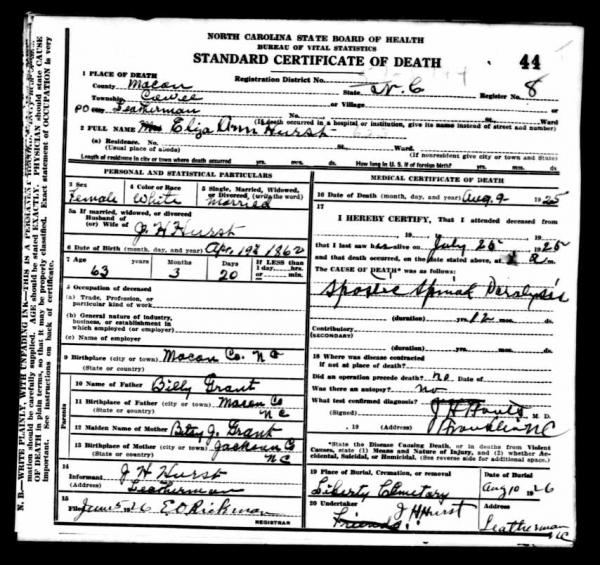 NORTH CAROLINA STATE BOARD OF HEALTH
BUREAU OF VITAL STATISTICS
STANDARD CERTIFICATE OF DEATH 44
1 PLACE OF DEATH
Registration District No.
County Macon State N.C. Register No. 8
Township Cowee or Village
PO City Leatherman No. St. Ward
(If death occurred in a hospital or institution, give its name instead of street and number)
2 FULL NAME Mrs Eliza Ann Hurst
(a) Residence. No. St. Ward
(Usual place of abode) (If nonresident give city or town and State)
Length of residence in city or town where death occurred yrs. mos. ds. How long in U. S. if of foreign birth? yrs. mos. ds.
PERSONAL AND STATISTICAL PARTICULARS
3 Sex 4 Color or Race 5 Single, Married, Widowed, or Divorced (write the word)
Female White Married
5a If married, widowed, or divorced
Husband of
(or) Wife of J H Hurst
6 Date of Birth (month, day, and year) Apr. 19th 1862
7 Age years Months Days If LESS than
63 3 20 1 day, hrs.
or min.
8 Occupation of deceased
(a) Trade, Profession, or
particular kind of work
(b) General nature of industry,
business, or establishment in
which employed (or employer)
(c) Name of employer
9 Birthplace (city or town) Macon Co. NC
(State or country)
Parents
10 Name of Father Billy Grant
11 Birthplace of Father (city or town) Macon Co
(State or country) NC
12 Maiden Name of Mother Betsy J. Grant
13 Birthplace of Mother (city or town) Jackson Co
(State or country) NC
14
Informant J H Hurst
(Address) Leatherman
15
Filed June 5 26 E O Rickman
REGISTRAR
MEDICAL CERTIFICATE OF DEATH
16 Date of Death (month, day, and year) Aug. 9 1925
17
I HEREBY CERTIFY, That I attended deceased
from , 19 , to , 19
that I last saw h alive on July 25 1925
and that death occurred, on the date stated above, at m.
The CAUSE OF DEATH* was as follows:
Spastic Spinal Paralysis
(duration) yrs. 12 mos. ds.
Contributory
(SECONDARY)
(duration) yrs. mos. ds.
18 Where was disease contracted
if not at place of death?
Did an operation precede death? no Date of
Was there an autopsy? no
What test confirmed diagnosis?
(Signed) J H Fouts M. D.
, 19 (Address) Franklin NC
*State the Disease Causing Death, or in deaths from Violent
Causes, state (1) Means and Nature of Injury, and (2) whether Accidental,
Suicidal, or Homicidal. (See reverse side for additional space.)
19 Place of Burial, Cremation, or removal Date of Burial
Liberty Cemetary Aug 10 1926
20 Undertaker J H Hurst Address
Friends Leatherman
NC